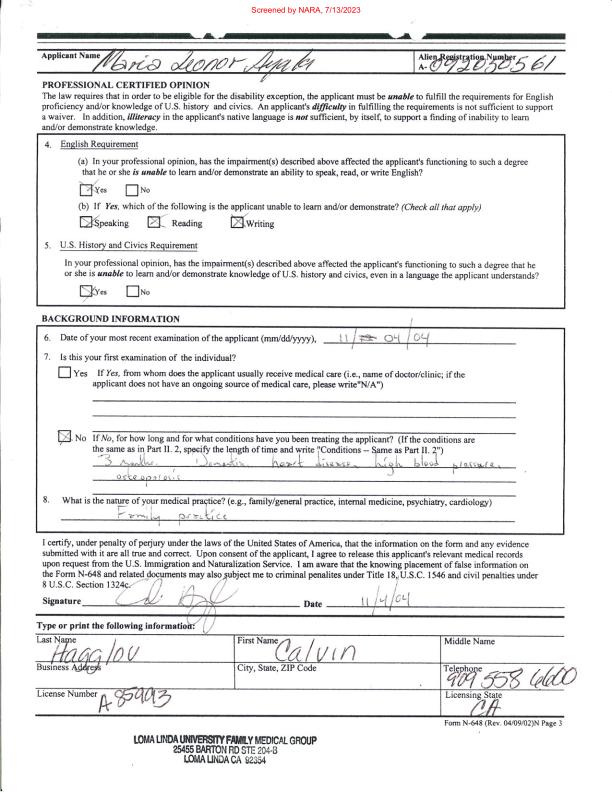 Screened by NARA, 7/13/2023
Applicant Name Maria Leonor Ayala
Alien Registration Number
A- 092030561
PROFESSIONAL CERTIFIED OPINION
The law requires that in order to be eligible for the disability exception, the applicant must be unable to fulfill the requirements for English
proficiency and/or knowledge of U.S. history and civics. An applicant's difficulty in fulfilling the requirements is not sufficient to support
a waiver. In addition, illiteracy in the applicant's native language is not sufficient, by itself, to support a finding of inability to learn
and/or demonstrate knowledge.
4. English Requirement
(a) In your professional opinion, has the impairment(s) described above affected the applicant's functioning to such a degree
that he or she is unable to learn and/or demonstrate an ability to speak, read, or write English?
Yes No
(b) If Yes, which of the following is the applicant unable to learn and/or demonstrate? (Check all that apply)
Speaking Reading Writing
5. U.S. History and Civics Requirement
In your professional opinion, has the impairment(s) described above affected the applicant's functioning to such a degree that he
or she is unable to learn and/or demonstrate knowledge of U.S. history and civics, even in a language the applicant understands?
Yes No
BACKGROUND INFORMATION
6. Date of your most recent examination of the applicant (mm/dd/yyyy), 11/04/04
7. Is this your first examination of the individual?
Yes If Yes, from whom does the applicant usually receive medical care (i.e., name of doctor/clinic; if the
applicant does not have an ongoing source of medical care, please write"N/A")
No If No, for how long and for what conditions have you been treating the applicant? (If the conditions are
the same as in Part II. 2, specify the length of time and write "Conditions -- Same as Part II. 2")
3 months. Dementia, heart disease, high blood pressure,
osteoporosis
8. What is the nature of your medical practice? (e.g., family/general practice, internal medicine, psychiatry, cardiology)
Family practice
I certify, under penalty of perjury under the laws of the United States of America, that the information on the form and any evidence
submitted with it are all true and correct. Upon consent of the applicant, I agree to release this applicant's relevant medical records
upon request from the U.S. Immigration and Naturalization Service. I am aware that the knowing placement of false information on
the Form N-648 and related documents may also subject me to criminal penalites under Title 18, U.S.C. 1546 and civil penalties under
8 U.S.C. Section 1324c.
Signature Date 11/4/04
Type or print the following information:
Last Name Hagglov
First Name Calvin
Middle Name
Business Address
City, State, ZIP Code
Telephone
909 558 6600
License Number A 85993
Licensing State
CA
Form N-648 (Rev. 04/09/02)N Page 3
LOMA LINDA UNIVERSITY FAMILY MEDICAL GROUP
25455 BARTON RD STE 204-B
LOMA LINDA CA 92354